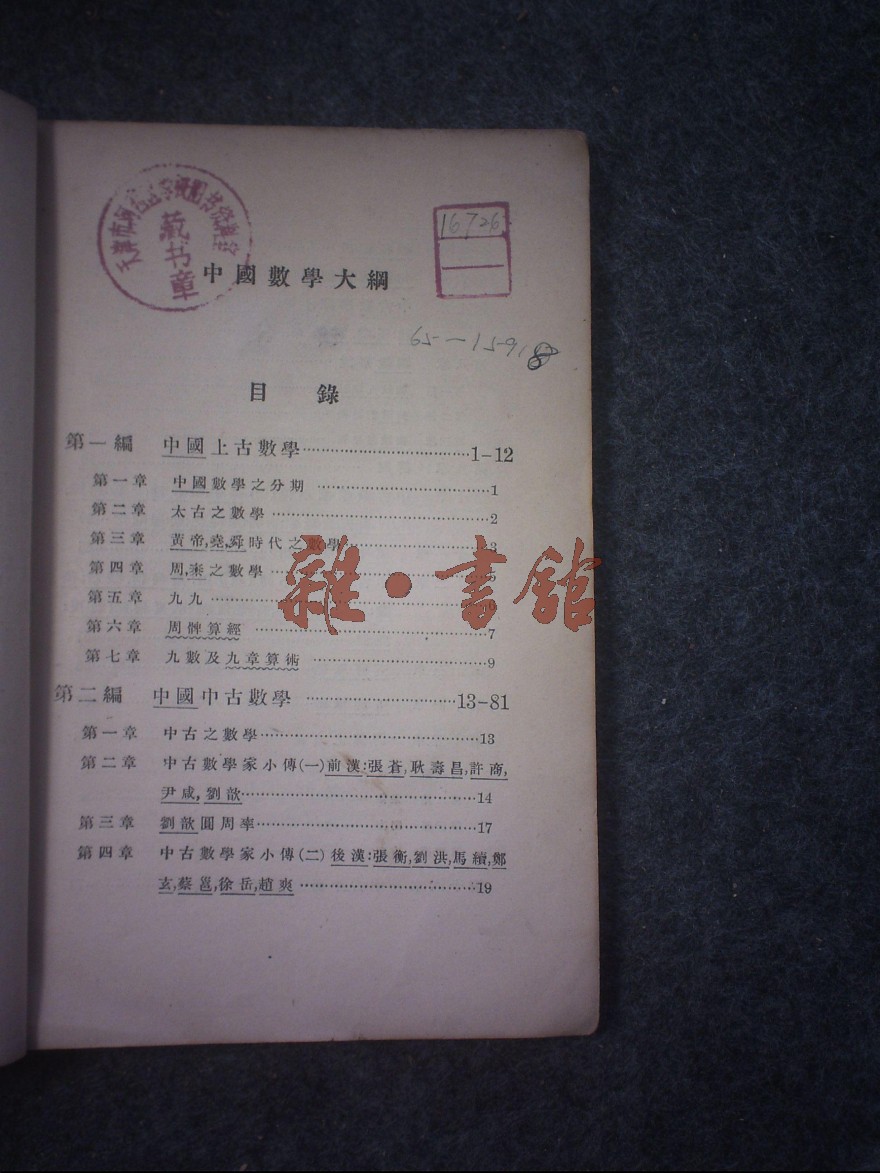 藏书章
16726
中國數學大綱
65-159.8
目錄
第一編 中國上古數學……1-12
第一章 中國數學之分期……1
第二章 太古之數學……2
第三章 黃帝,堯,舜時代之數學……3
第四章 周,秦之數學……5
第五章 九九……
第六章 周髀算經……7
第七章 九數及九章算術……9
第二編 中國中古數學……13-81
第一章 中古之數學……13
第二章 中古數學家小傳(一)前漢:張蒼,耿壽昌,許商,
尹咸,劉歆……14
第三章 劉歆圓周率……17
第四章 中古數學家小傳(二)後漢:張衡,劉洪,馬續,鄭
玄,蔡邕,徐岳,趙爽……19
雜·書館